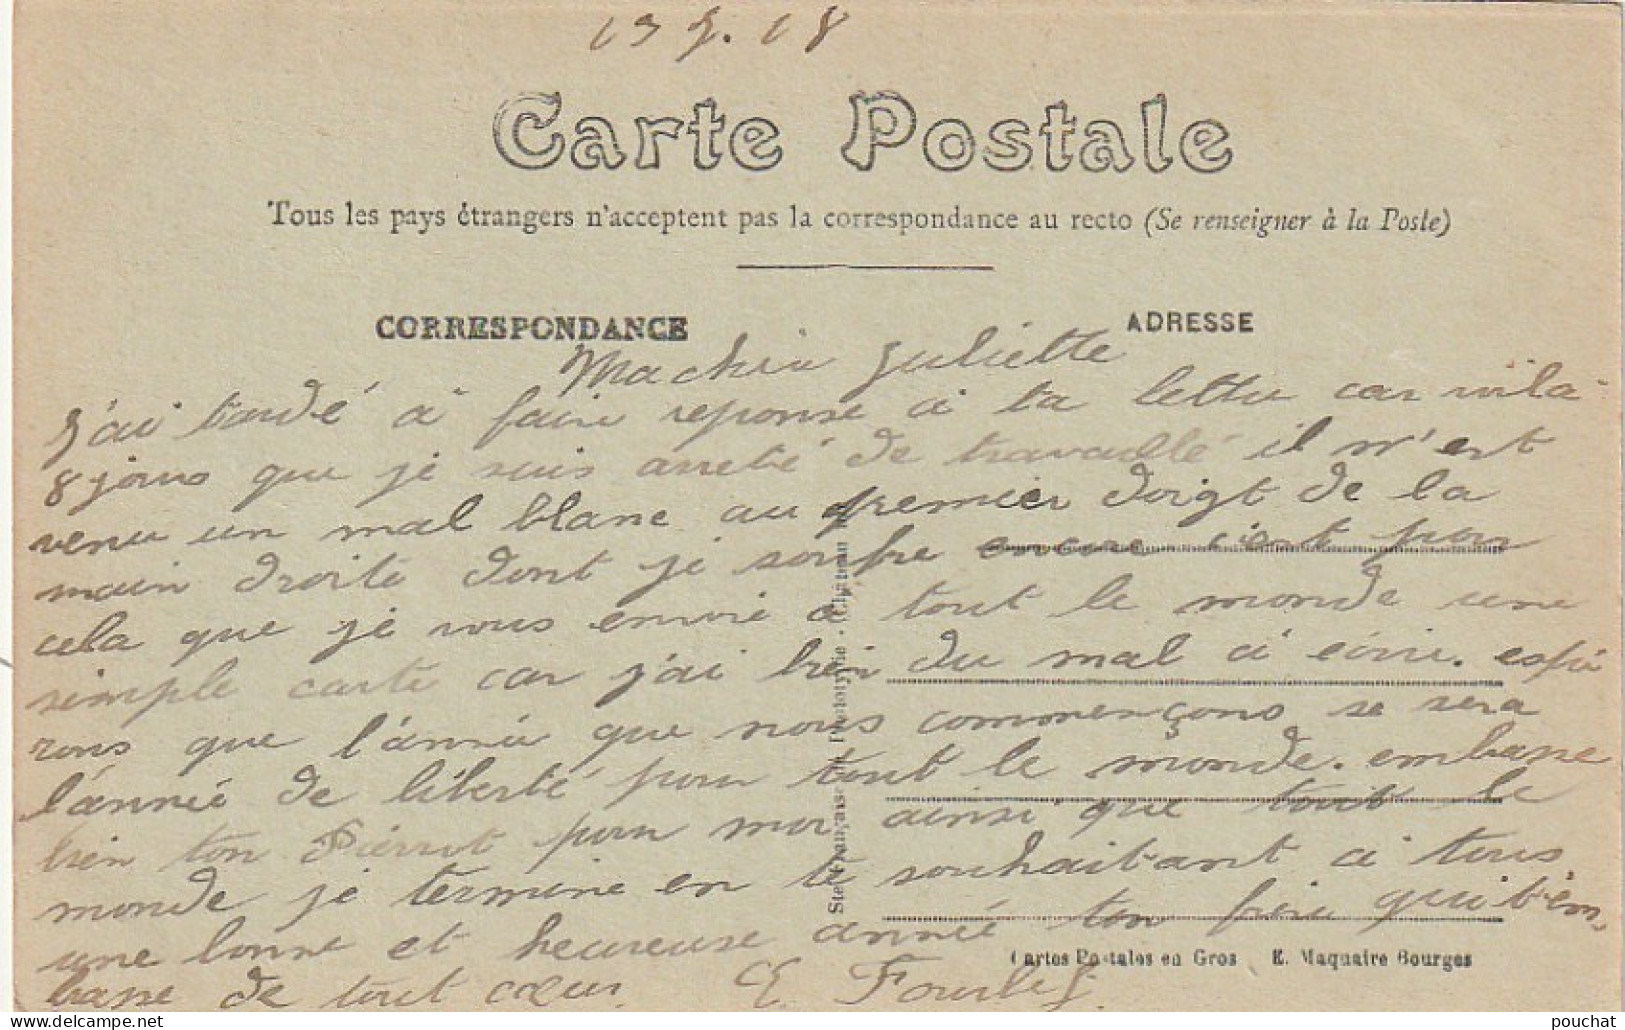 Carte Postale
Tous les pays étrangers n'acceptent pas la correspondance au recto (Se renseigner à la Poste)
CORRESPONDANCE
ADRESSE
Ma cheriu Juliette
J'ai tardé a faire reponse a ta lettre car voila
8 jours que je suis arreté de travaillé il m'est
venu un mal blanc au premier doigt de la
main droite dont je soufre encore c'est pour
cela que je vous envoie a tout le monde une
simple carte car j'ai bien du mal a écrire. espé
rons que l'année que nous commençons se sera
l'année de liberté pour tout le monde. embrasse
bien ton Pierrot pour moi ainsi que tout le
monde je termine en te souhaitant a tous
une bonne et heureuse année ton frère qui t'em-
brasse de tout cœur. E.
Phototypie
Cartes Postales en Gros E. Maquaire Bourges
pouchat